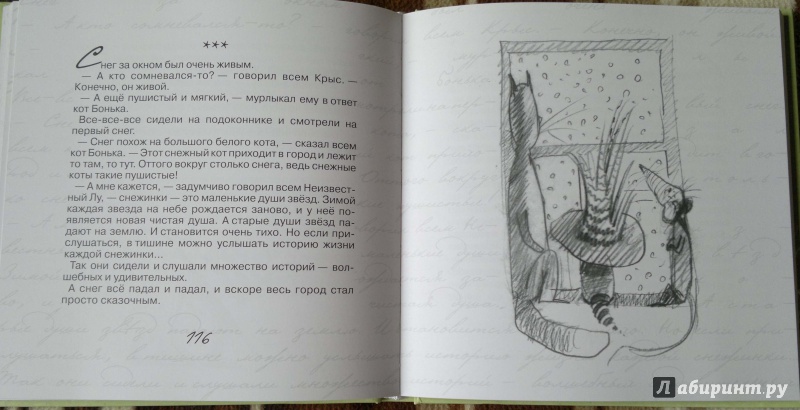 ***
Снег за окном был очень живым.
— А кто сомневался-то? — говорил всем Крыс. —
Конечно, он живой.
— А ещё пушистый и мягкий, — мурлыкал ему в ответ
кот Бонька.
Все-все-все сидели на подоконнике и смотрели на
первый снег.
— Снег похож на большого белого кота, — сказал всем
кот Бонька. — Этот снежный кот приходит в город и лежит
то там, то тут. Оттого вокруг столько снега, ведь снежные
коты такие пушистые!
— А мне кажется, — задумчиво говорил всем Неизвест-
ный Лу, — снежинки — это маленькие души звёзд. Зимой
каждая звезда на небе рождается заново, и у неё по-
является новая чистая душа. А старые души звёзд па-
дают на землю. И становится очень тихо. Но если при-
слушаться, в тишине можно услышать историю жизни
каждой снежинки...
Так они сидели и слушали множество историй — вол-
шебных и удивительных.
А снег всё падал и падал, и вскоре весь город стал
просто сказочным.
116
Лабиринт.ру